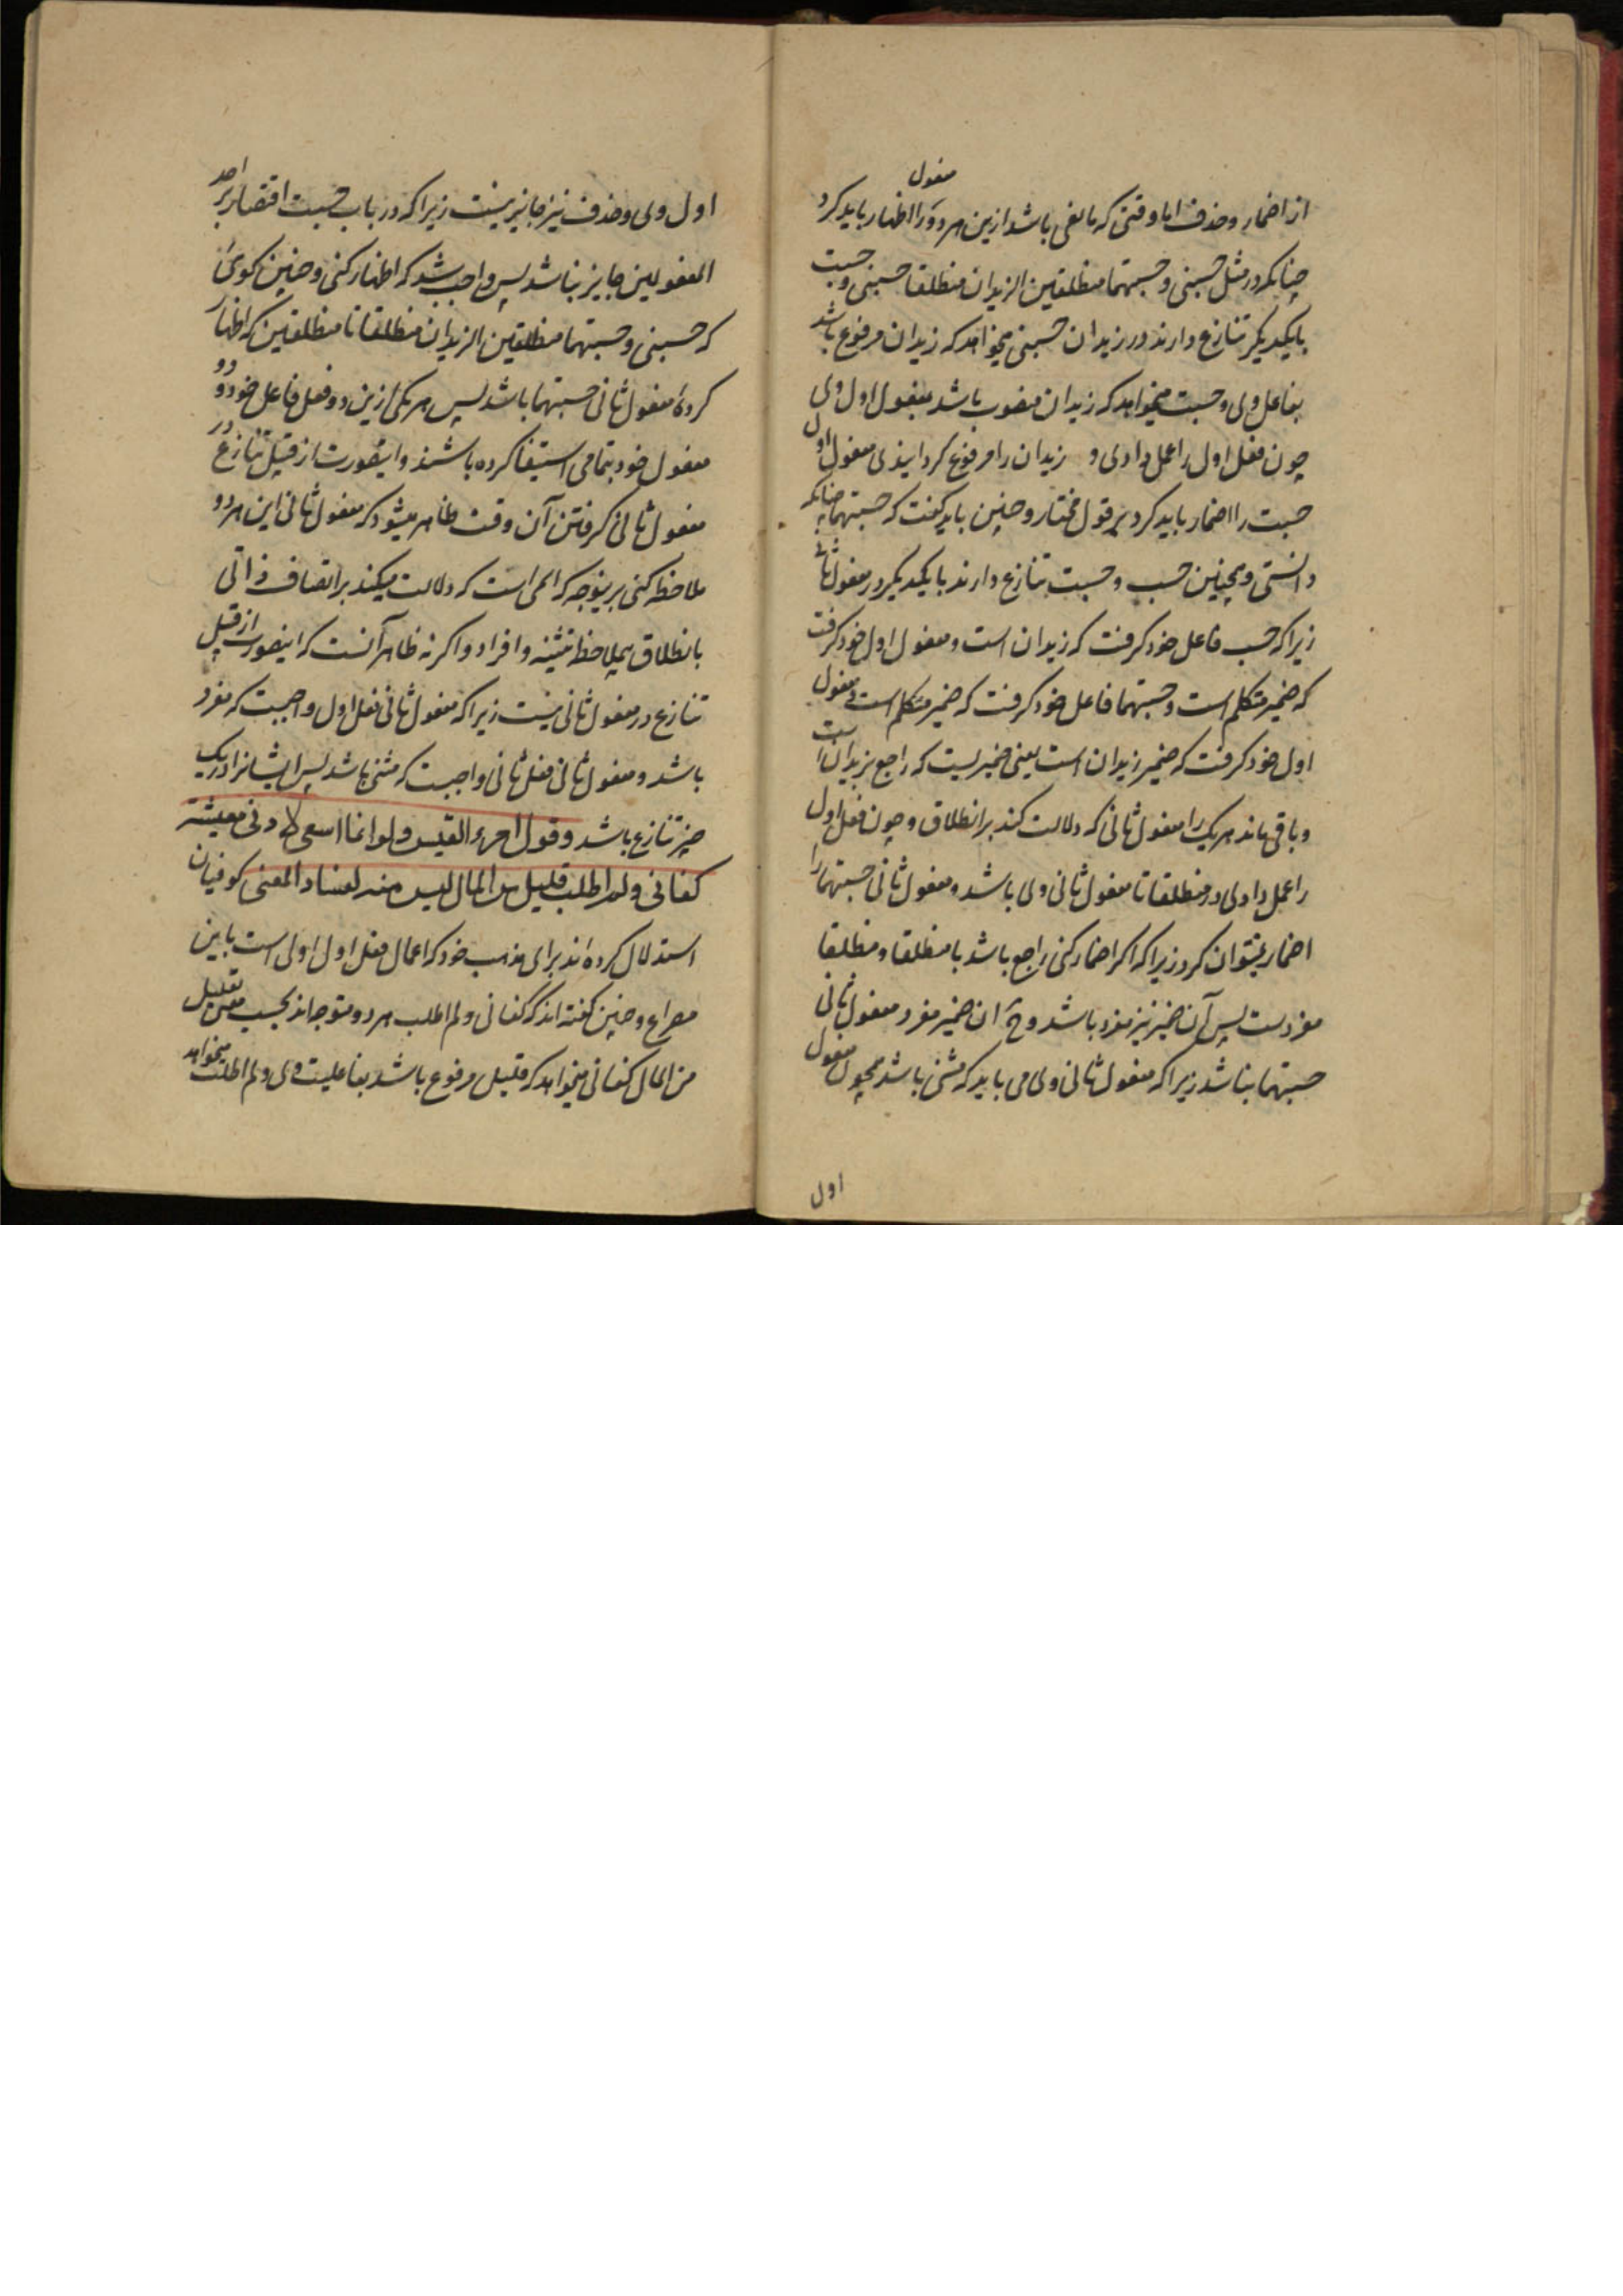 مفعول
از اضمار و حذف اما وقتی که مانعی باشد ازین هر دو را اظهار باید کرد
چنانکه در مثل حسبنی و حسبتهما منطلقین الزیدان منطلقا حسبنی و حسبت
بایکدیگر تنازع دارند در زیدان حسبنی میخواهد که زیدان مرفوع باشد
بفاعل وی و حسبت میخواهد که زیدان منصوب باشد بمفعول اول وی
چون فعل اول را عمل دادی و زیدان را مرفوع کردانیدی مفعول اول
حسبت را اضمار باید کرد بر قول مختار و چنین باید کفت که حسبتهما چنانکه
دانستی و همچنین حسب و حسبت تنازع دارند بایکدیگر در مفعول ثانی
زیرا که حسب فاعل خود کرفت که زیدان است و مفعول اول خود کرفت
که ضمیر متکلم است و حسبتهما فاعل خود کرفت که ضمیر متکلم است و مفعول
اول خود کرفت که ضمیر زیدان است یعنی ضمیریست که راجع بزیدان است
و باقی ماند هر یک را مفعول ثانی که دلالت کند بر انطلاق و چون فعل اول
را عمل دادی در منطلقا تا مفعول ثانی وی باشد و مفعول ثانی حسبتهما را
اضمار نمیتوان کرد زیرا که اکر اضمار کنی راجع باشد با منطلقا و منطلقا
مفردست پس آن ضمیر نیز مفرد باشد و ح ان ضمیر مفرد مفعول ثانی
حسبتهما نباشد زیرا که مفعول ثانی وی می باید که مثنی باشد همچون مفعول
اول
اول وی و حذف نیز جایز نیست زیرا که در باب حسبت اقتصار بر احد
المفعولین جایز نباشد پس واجب شد که اظهار کنی و چنین کوئی
که حسبنی و حسبتهما منطلقین الزیدان منطلقا تا منطلقین که اظهار
کردهٔ مفعول ثانی حسبتهما باشد پس هر یکی ازین دو فعل فاعل خود و دو
مفعول خود بتمامی استیفا کرده باشند و اینصورت از قبیل تنازع در
مفعول ثانی کرفتن آن وقت ظاهر میشود که مفعول ثانی این هر دو
ملاحظه کنی برینوجه که اسمی است که دلالت میکند بر اتصاف ذاتی
بانطلاق بی ملاحظه تثنیه و افراد و اکر نه ظاهر آنست که اینصورت از قبیل
تنازع در مفعول ثانی نیست زیرا که مفعول ثانی فعل اول واجبست که مفرد
باشد و مفعول ثانی فعل ثانی واجبست که مثنی باشد پس ایشانرا در یک
چیز تنازع باشد و قول امرء القیس و لو انما اسعی لادنی معیشة
کفانی و لم اطلب قلیل من المال لیس منه لفساد المعنی کوفیان
استدلال کرده اند برای مذهب خود که اعمال فعل اول اولی است باین
مصراع و چنین کفته اند که کفانی و لم اطلب هر دو متوجه اند بحسب معنی بقلیل
من المال کفانی میخواهد که قلیل مرفوع باشد بفاعلیت وی و لم اطلب میخواهد